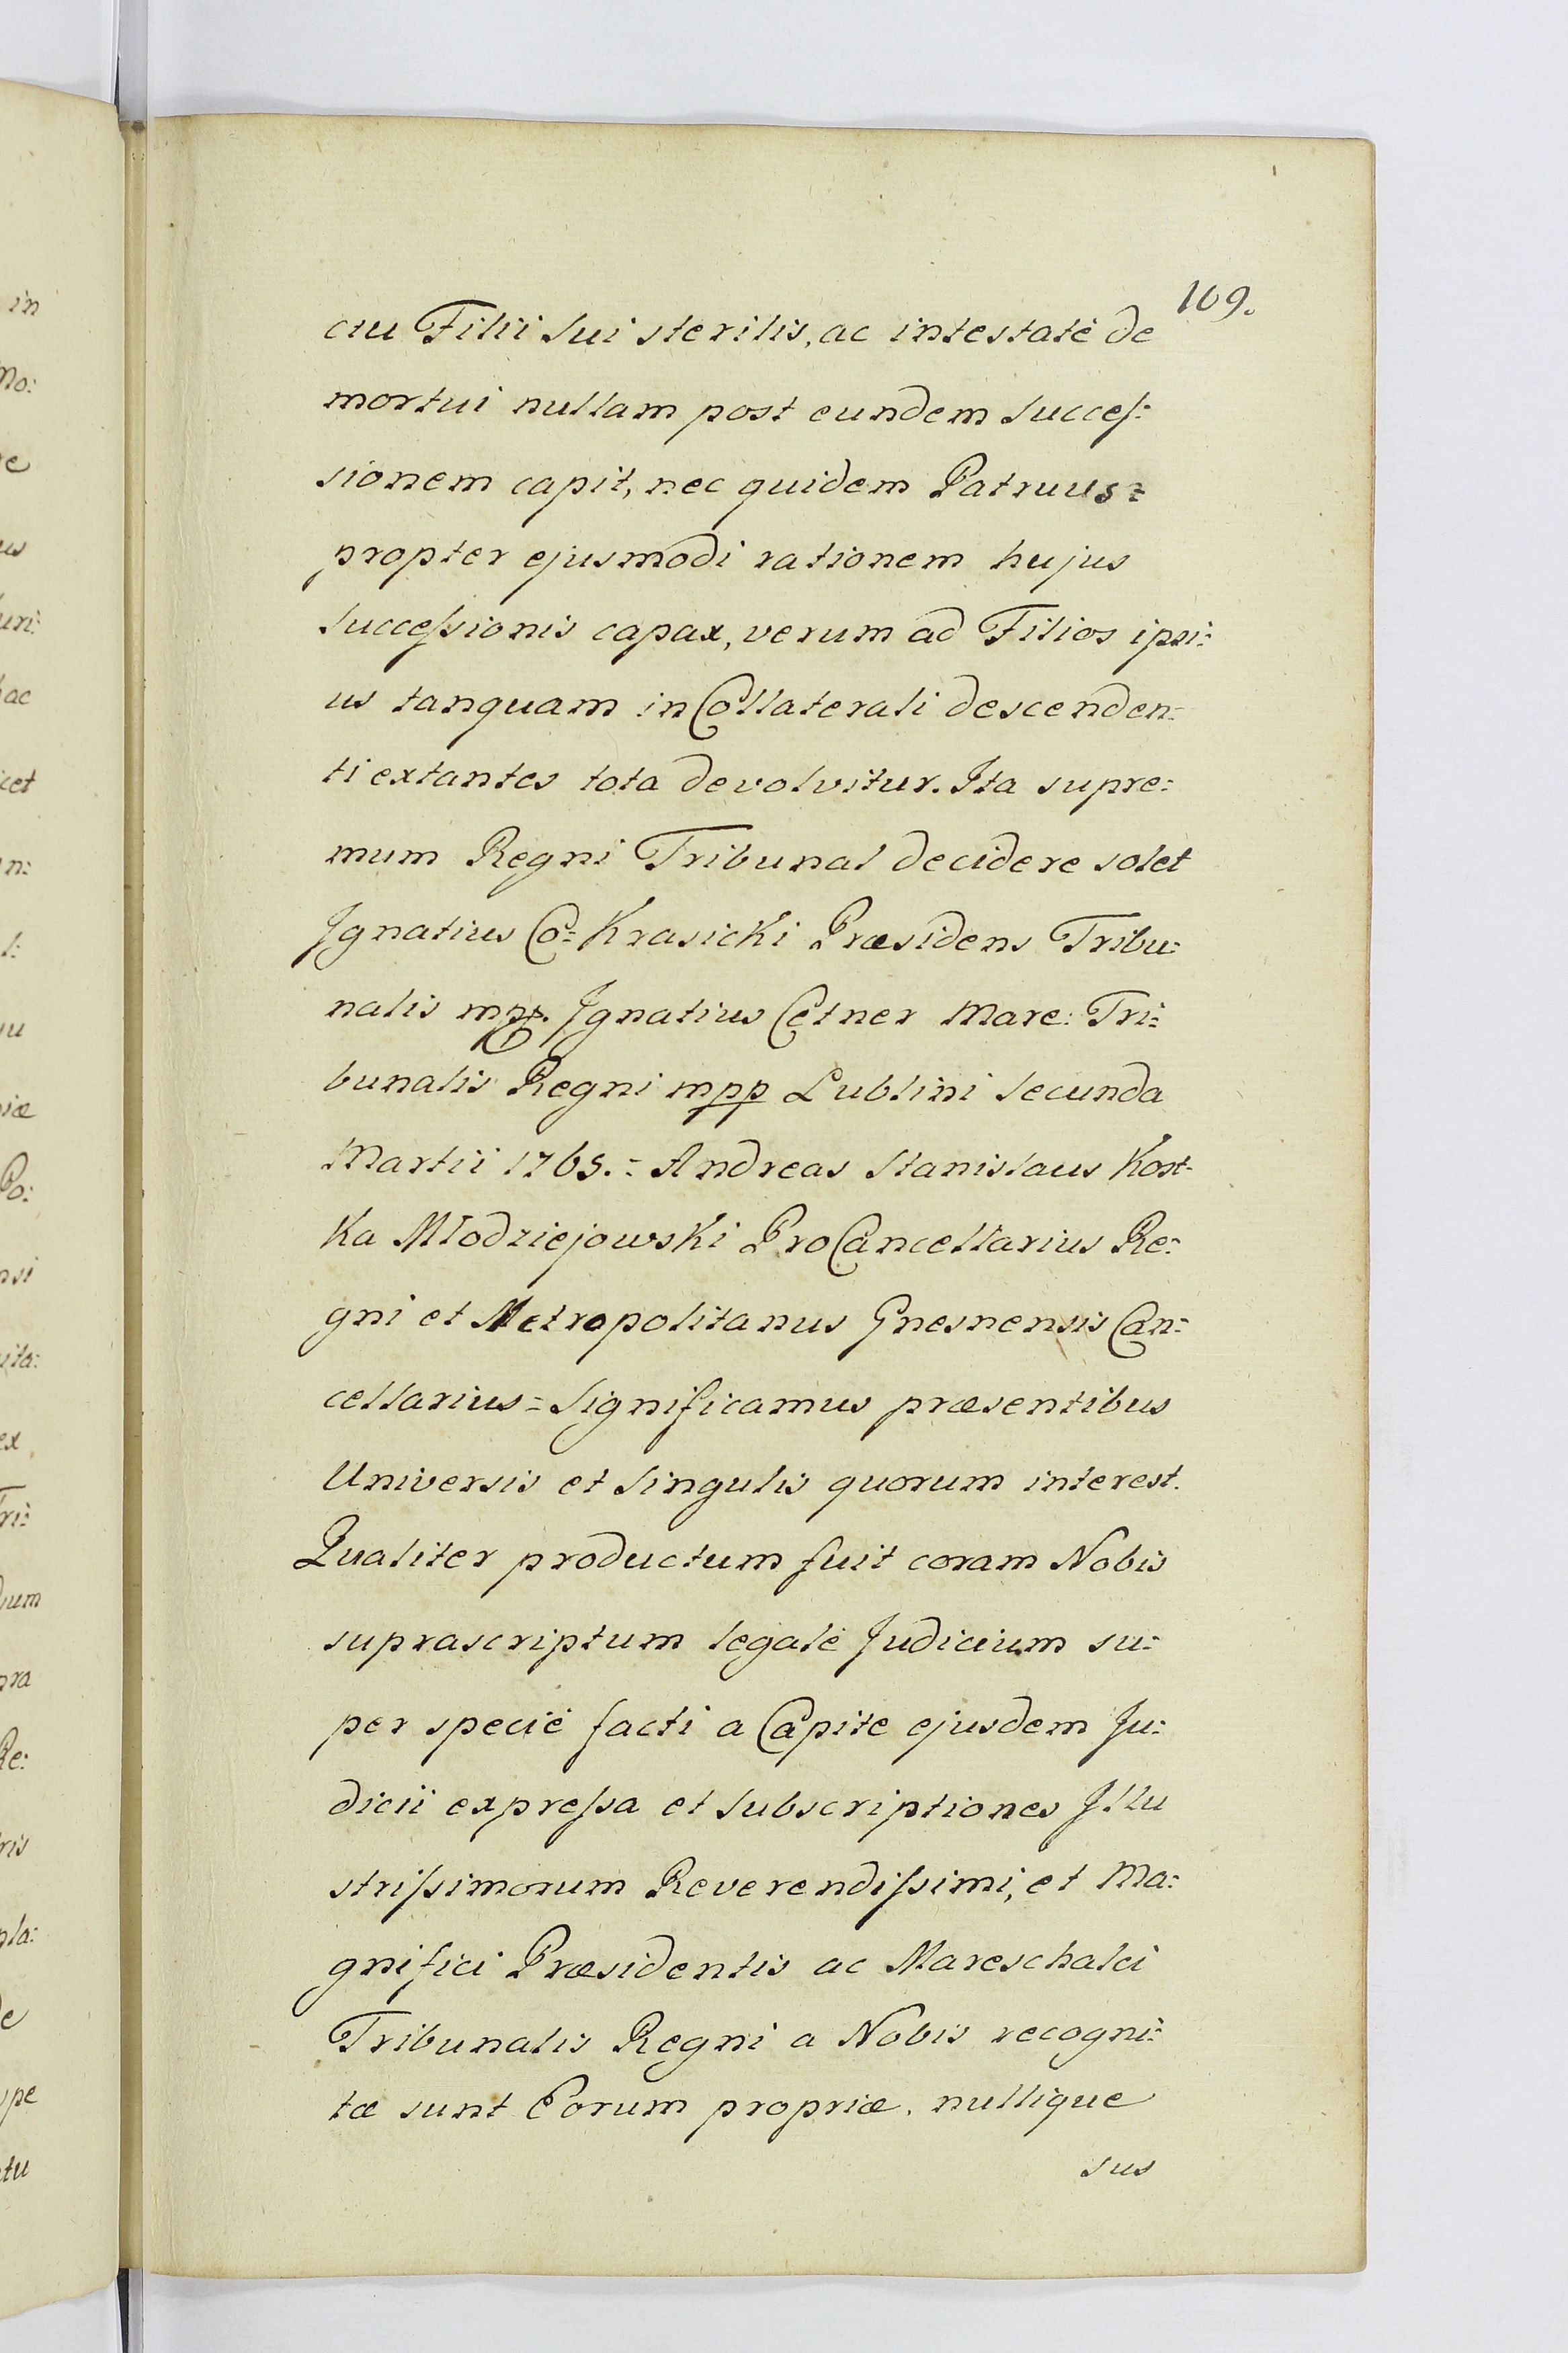 109.
ctu Filii sui sterilis, ac intestatè de
mortui nullam post eundem succeſ:
sionem capit, nec quidem Patruus =
propter ejusmodi rationem hujus
succeſsionis capax, verum ad Filios ipsi:
us tanquam in Collaterali descenden:
ti extantes tota devolvitur. Ita supre:
mum Regni Tribunal decidere solet
Ignatius Co= Krasicki Præsidens Tribu:
nalis mpp. Ignatius Cetner Mare: Tri:
bunalis Regni mpp Lublini secunda
Martii 1765. = Andreas Stanislaus Kost-
ka Młodziejowski ProCancellarius Re:
gni et Metropolitanus Gnesnensis Can:
cellarius = Significamus præsentibus
Universis et singulis quorum interest.
Qualiter productum fuit coram Nobis
suprascriptum legale Judicium su:
per specie facti a Capite ejusdem Ju:
dicii expreſsa et subscriptiones Illu
striſsimorum Reverendiſsimi, et Ma:
gnifici Præsidentis ac Mareschalci
Tribunalis Regni a Nobis recogni:
tæ sunt Eorum propriæ, nullique
sus
in
Mo:
uri:
hac
icet
n:
l:
Po:
nsi
ex,
Tri:
ium
ora
Re:
ris
de
ope
ntu